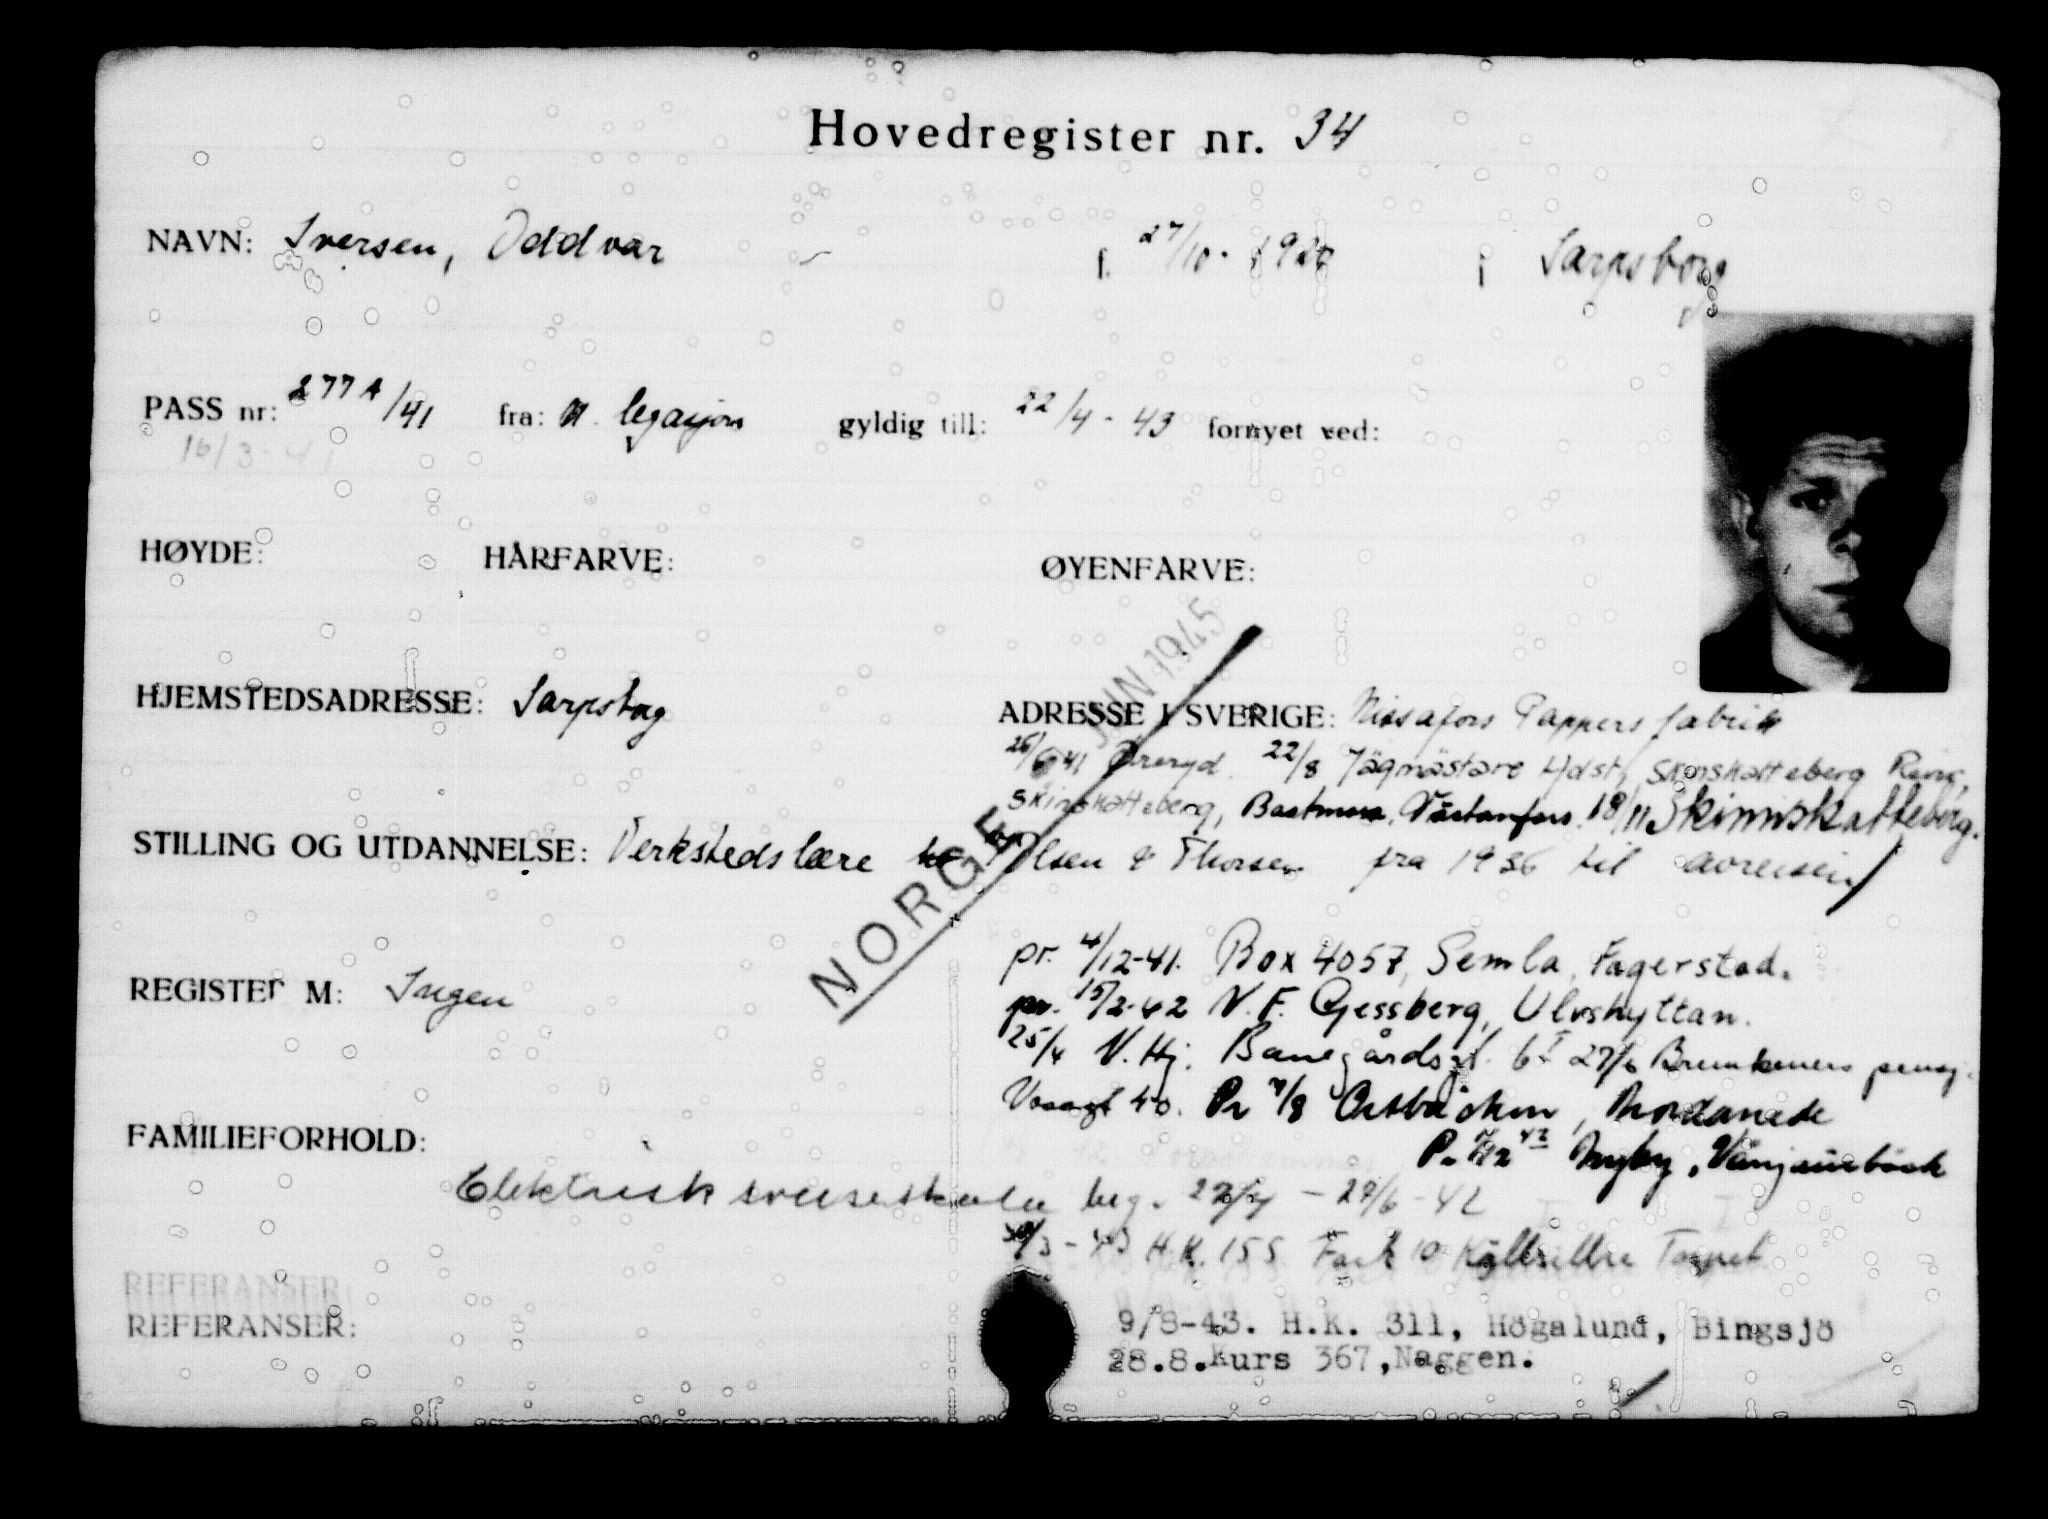 Hovedregister nr. 34
NAVN: Iversen, Oddvar – f. 27/10-1920 i Sarpsborg
PASS nr: 277A/41 fra: N. legasjon gyldig till: 22/4-43 fornyet ved:
16/3-41
HØYDE: HÅRFARVE: ØYENFARVE:
JUN 1945
HJEMSTEDSADRESSE: Sarpsborg ADRESSE I SVERIGE: Nissafors Pappersfabrik
26/6 41 Öreryd. 22/8 Jägmästare Skinskatteberg
Skinskatteberg, Bastmora, Västanfors. 18/11 Skinnskatteberg.
STILLING OG UTDANNELSE: Verkstedslære Olsen & Thorsen fra 1936 til avreisen
NORGE
pr. 4/12-41. Box 4057, Semla, Fagersta.
REGISTER M: Ingen
pr. 15/2-42 N.F. Gessberg, Ulvshyttan.
25/4 N.Hj. Banegårdsgt. 6 I 27/6 Brunkeners pensj.
Vasagt 40. Pr 7/8 Nordanede
FAMILIEFORHOLD:
Elektrisk sveiseskole beg. 22/4 – 27/6-42
30/3-43 H.K. 155 Fack 10
REFERANSER:
REFERANSER: 9/8-43. H.K. 311, Högalund, Bingsjö
28.8.Kurs 367,Naggen.